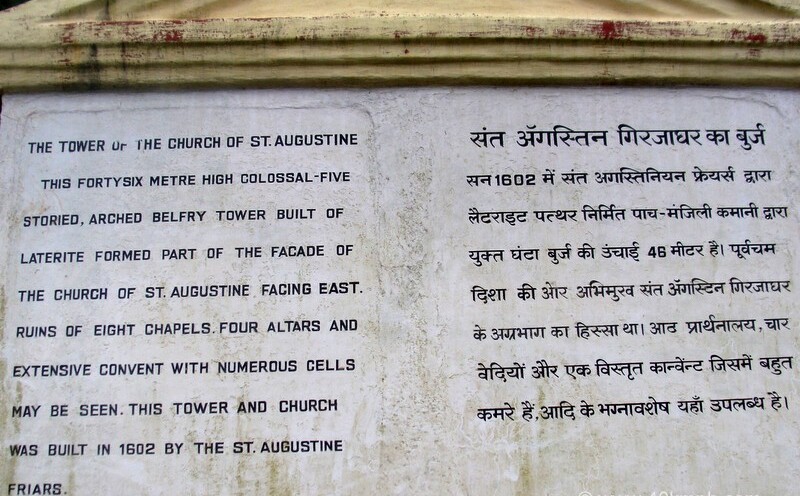 THE TOWER OF THE CHURCH OF ST. AUGUSTINE
THIS FORTYSIX METRE HIGH COLOSSAL-FIVE
STORIED, ARCHED BELFRY TOWER BUILT OF
LATERITE FORMED PART OF THE FACADE OF
THE CHURCH OF ST. AUGUSTINE FACING EAST.
RUINS OF EIGHT CHAPELS. FOUR ALTARS AND
EXTENSIVE CONVENT WITH NUMEROUS CELLS
MAY BE SEEN. THIS TOWER AND CHURCH
WAS BUILT IN 1602 BY THE ST. AUGUSTINE
FRIARS.
संत ॲगस्तिन गिरजाघर का बुर्ज
सन 1602 में संत अगस्तिनियन फ्रेयर्स द्वारा
लैटराइट पत्थर निर्मित पाच-मंजिली कमानी द्वारा
युक्त घंटा बुर्ज की उंचाई 46 मीटर है। पूर्वचम
दिशा की ओर अभिमुख संत ॲगस्टिन गिरजाघर
के अग्रभाग का हिस्सा था। आठ प्रार्थनालय, चार
वेदियों और एक विस्तृत कान्वेंट जिसमें बहुत
कमरे हैं, आदि के भग्नावशेष यहाँ उपलब्ध है।